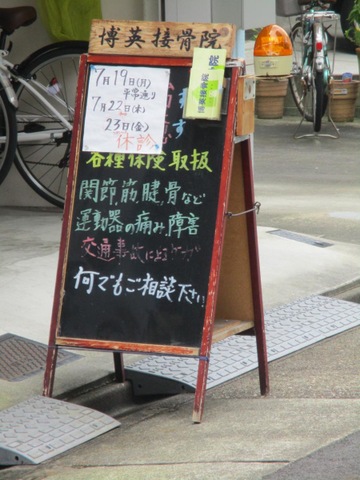 博英接骨院
7月19日(月)
平常通り
7月22日(木)
23日(金)
休診
す
す
各種保険取扱
関節、筋、腱、骨など
運動器の痛み、障害
交通事故によるケガ
何でもご相談下さい